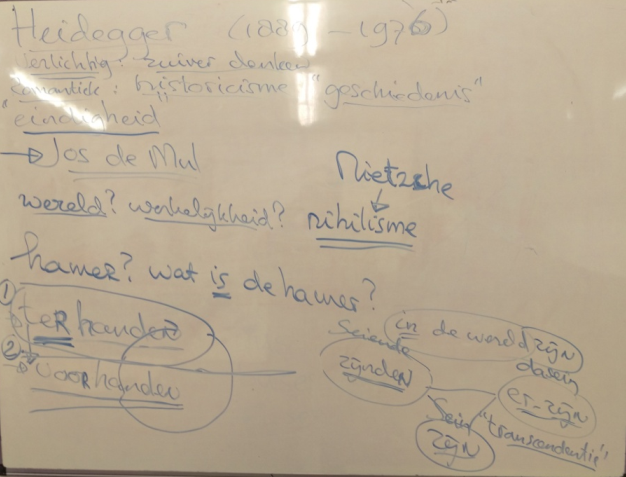 Heidegger (1889-1976)
verlichting: zuiver denken
romantiek: historicisme: "geschiedenis"
"eindigheid"
→ Jos de Mul
Nietzsche
↓
wereld? werkelijkheid? nihilisme
hamer? wat is de hamer?
① terhanden
② voorhanden
in de wereld zijn
Seiende
dasein
zijnden
er-zijn
Sein
"transcendentie"
zijn